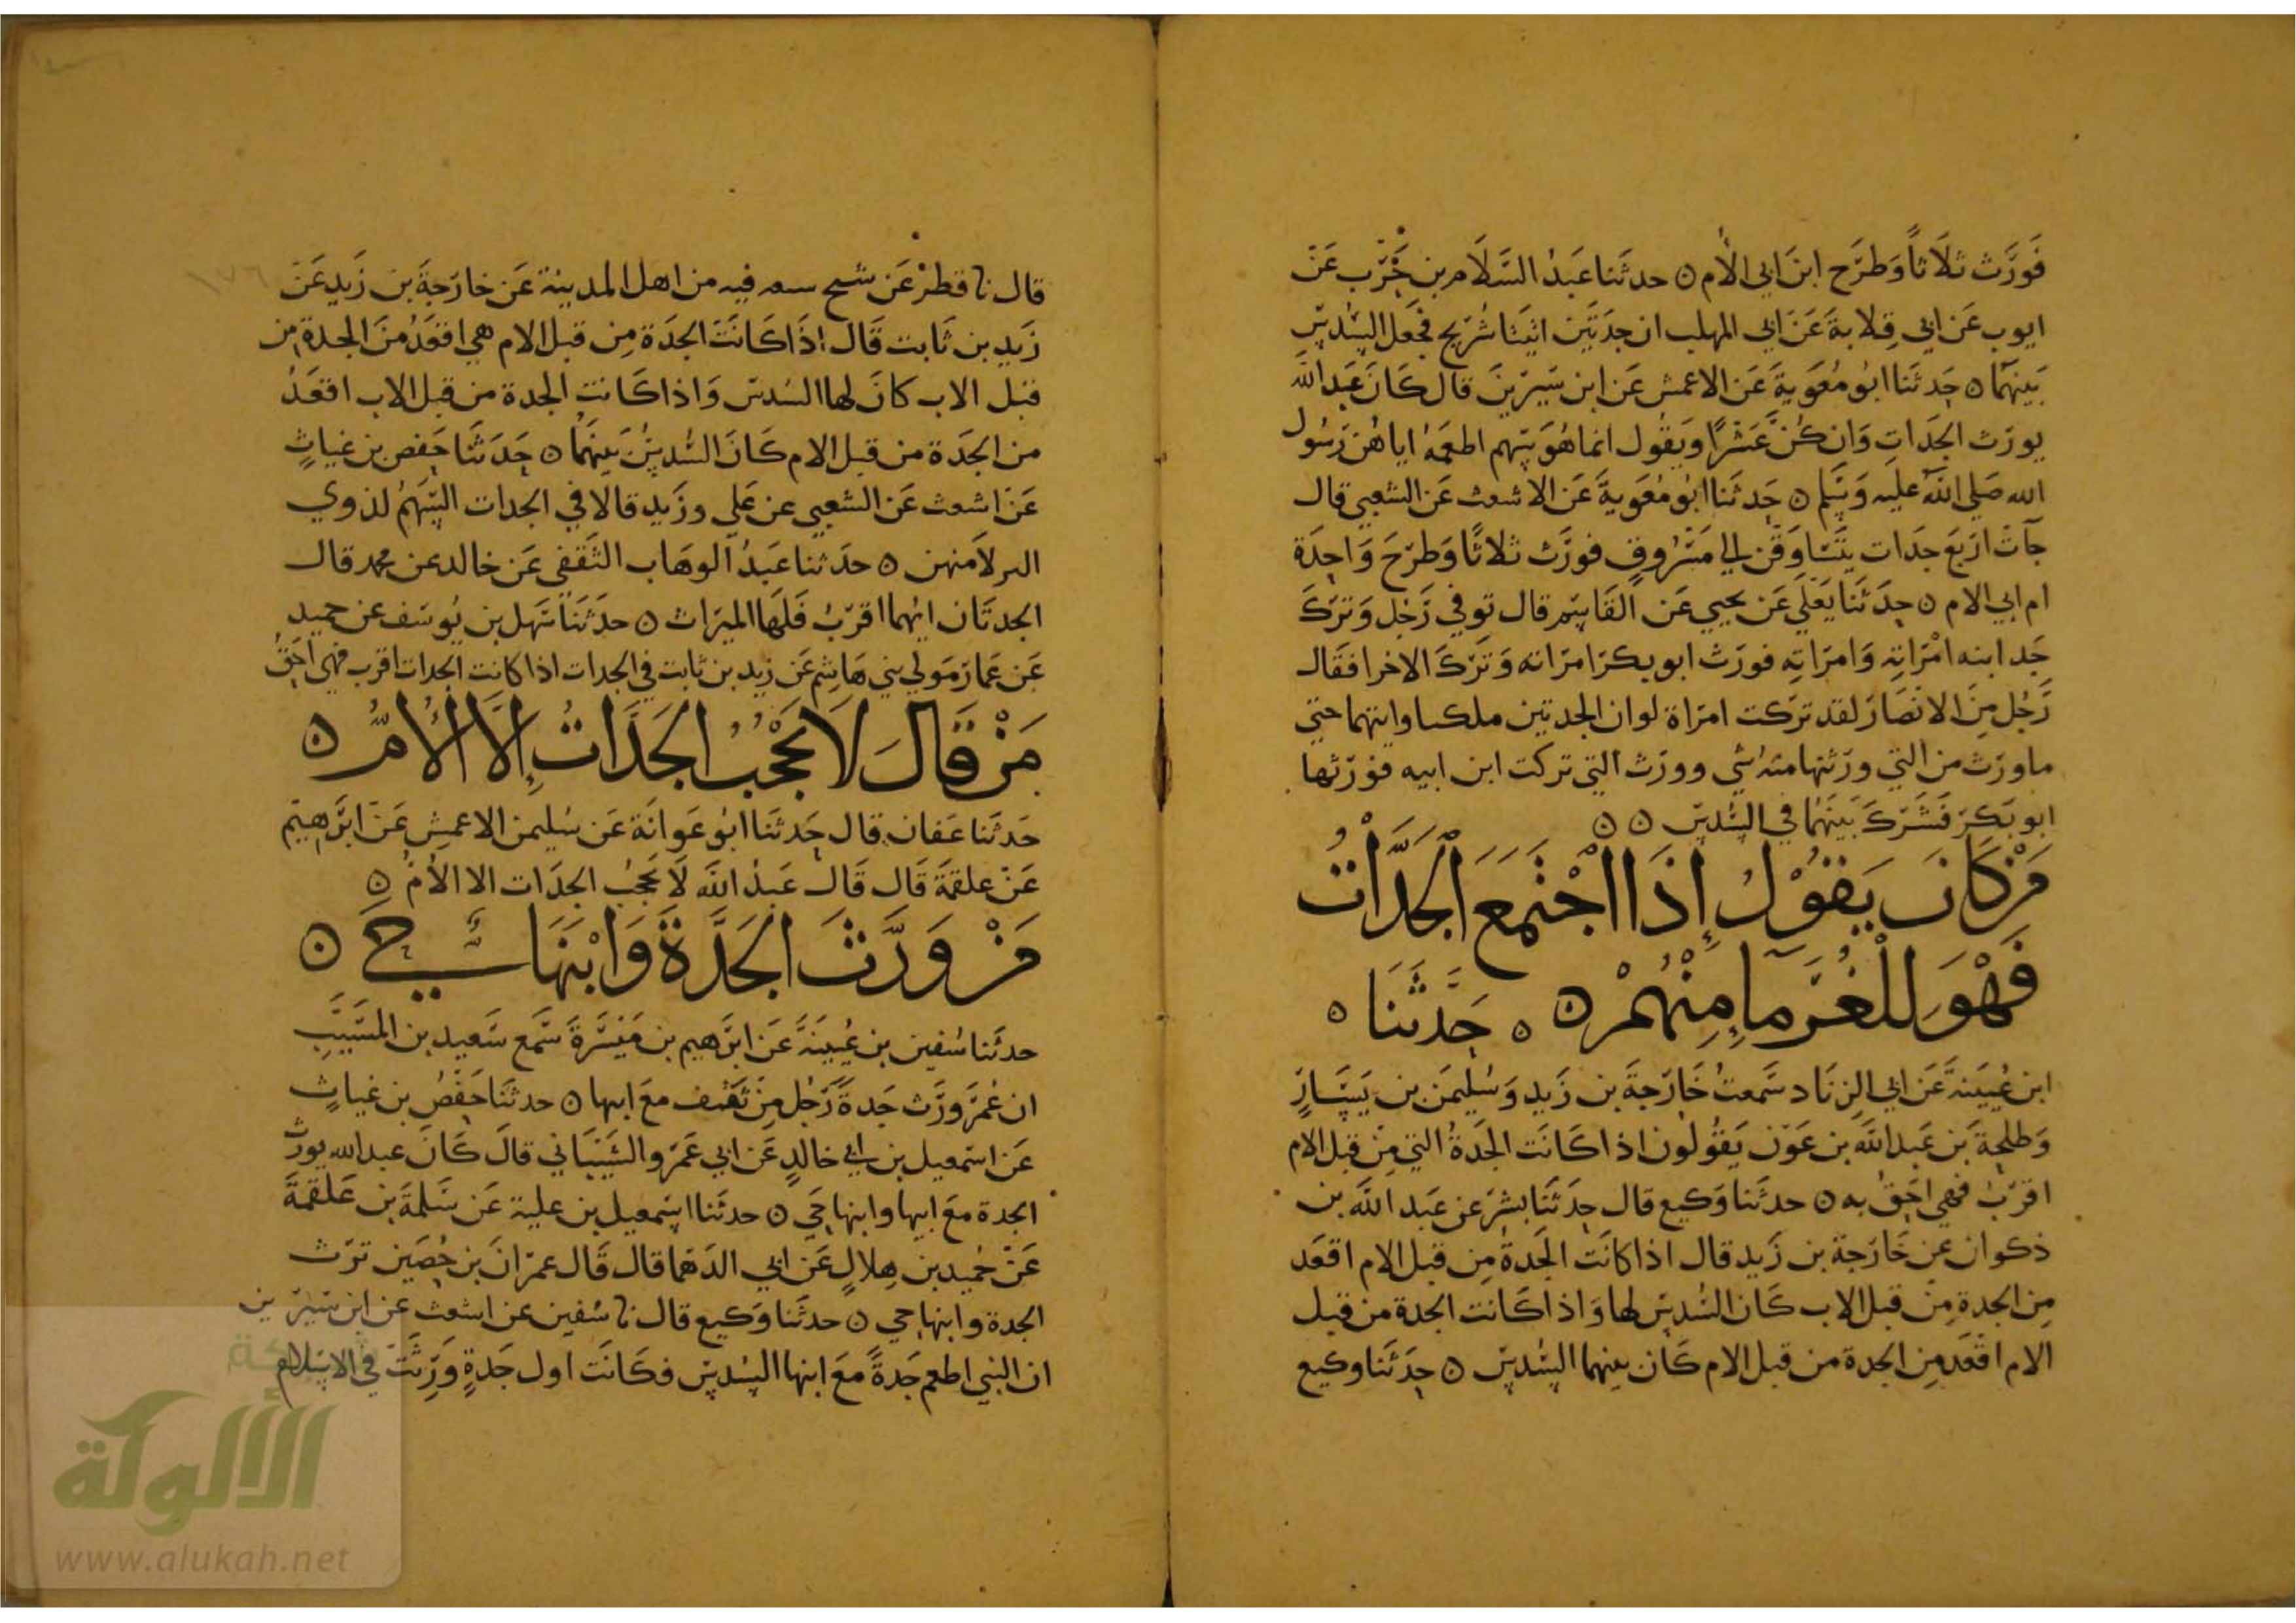 فورث ثلاثا وطرح ابن ابي الام ٥ حدثنا عبد السلام بن حرب عن
ايوب عن ابي قلابة عن ابي المهلب ان جدتين اتيتا شريح فجعل السدس
بينهما ٥ حدثنا ابو معوية عن الاعمش عن ابن سيرين قال كان عبد الله
يورث الجدات وان كن عشرا ويقول انما هو سهم اطعمه اياهن رسول
الله صلى الله عليه وسلم ٥ حدثنا ابو معوية عن الاشعث عن الشعبي قال
جات اربع جدات يتساوقن الي مسروق فورث ثلاثا وطرح واحدة
ام ابي الام ٥ حدثنا يعلي عن يحيي عن القاسم قال توفي رجل وترك
جد ابنه امراته وامراته فورث ابو بكر امراته وترك الاخرا فقال
رجل من الانصار لقد تركت امراة لو ان الجدتين وابنهما حتي
ما ورث من التي ورثتها منه شي وورث التي تركت ابن ابيه فورثها
ابو بكر فشرك بينهما في السدس ٥ ٥
من كان يقول اذا اجتمع الجدات
فهو للغرما منهم ٥ ٥ حدثنا ٥
ابن عيينة عن ابي الزناد سمعت خارجة بن زيد وسليمن بن يسار
وطلحة بن عبد الله بن عون يقولون اذا كانت الجدة التي من قبل الام
اقرب فهي احق به ٥ حدثنا وكيع قال حدثنا بشر عن عبد الله بن
ذكوان عن خارجة بن زيد قال اذا كانت الجدة من قبل الام اقعد
من الجدة من قبل الاب كان السدس لها واذا كانت الجدة من قبل
الام اقعد من الجدة من قبل الام كان بينهما السدس ٥ حدثنا وكيع
قال نا قطر عن شيخ فيه من اهل المدينة عن خارجة بن زيد عن
زيد بن ثابت قال اذا كانت الجدة من قبل الام هي اقعد من الجدة من
قبل الاب كان لها السدس واذا كانت الجدة من قبل الاب اقعد
من الجدة من قبل الام كان السدس بينهما ٥ حدثنا حفص بن غياث
عن اشعث عن الشعبي عن علي وزيد قالا في الجدات السهم لذوي
منهن ٥ حدثنا عبد الوهاب الثقفي عن خالد عن محمد قال
الجدتان ايهما اقرب فلها الميراث ٥ حدثنا سهل بن يوسف عن حميد
عن عمار مولي بني هاشم عن زيد بن ثابت في الجدات اذا كانت الجدات اقرب فهي احق
من قال لا يحجب الجدات إلا الأم ٥
حدثنا عفان قال حدثنا ابو عوانة عن سليمن الاعمش عن ابرهيم
عن علقمة قال قال عبد الله لا يحجب الجدات الا الأم ٥
من ورث الجدة وابنها حي ٥
حدثنا سفين بن عيينة عن ابرهيم بن ميسرة سمع سعيد بن المسيب
ان عمر ورث جدة رجل من ثقيف مع ابنها ٥ حدثنا حفص بن غياث
عن اسمعيل بن ابي خالد عن ابي عمرو الشيباني قال كان عبد الله يورث
الجدة مع ابنها وابنها حي ٥ حدثنا اسمعيل بن علية عن سلمة بن علقمة
عن حميد بن هلال عن ابي الدهما قال قال عمران بن حصين ترث
الجدة وابنها حي ٥ حدثنا وكيع قال نا سفين عن اشعث عن ابن سيرين
ان النبي اطعم جدة مع ابنها السدس فكانت اول جدة ورثت في الاسلام
١٧٦
شبكة
الألوكة
www.alukah.net